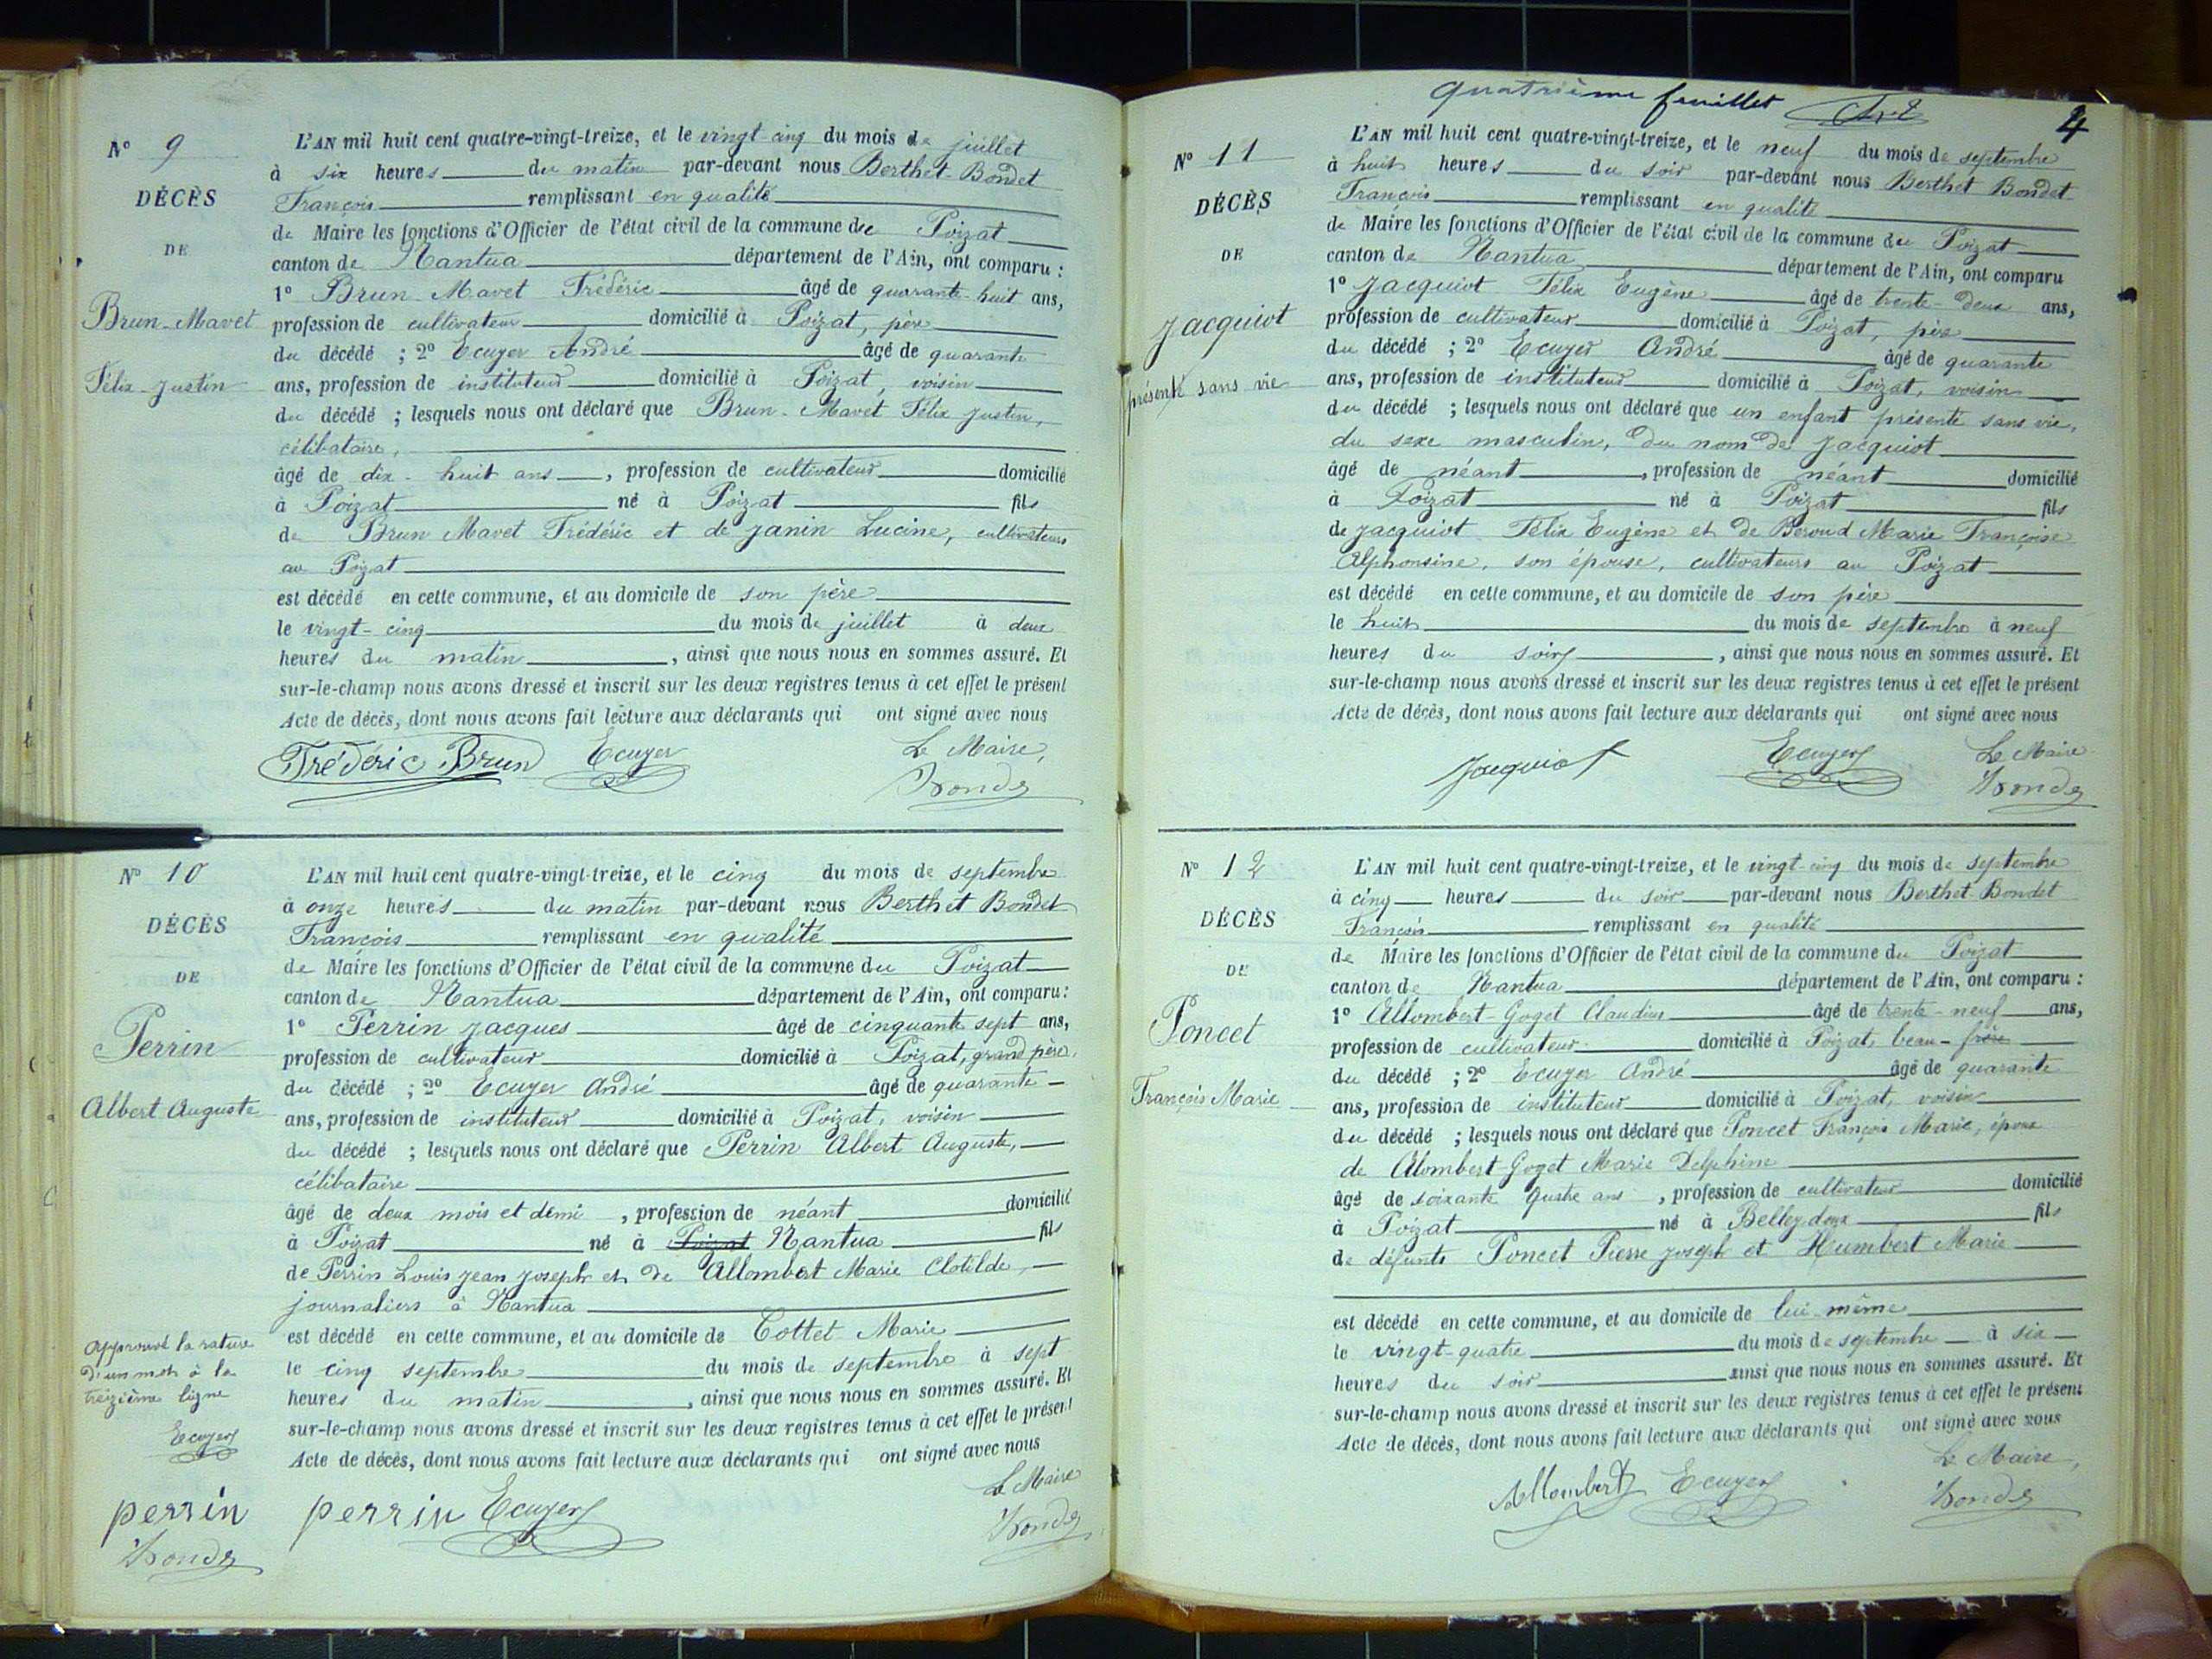 N° 9
DÉCÈS
DE
Brun-Mavet
Félix-Justin
L'AN mil huit cent quatre-vingt-treize, et le vingt-cinq du mois de juillet
à six heures du matin par-devant nous Berthet Bondet
François remplissant en qualité
de Maire les fonctions d'Officier de l'état civil de la commune du Poizat
canton de Nantua département de l'Ain, ont comparu :
1° Brun-Mavet Frédéric âgé de quarante-huit ans,
profession de cultivateur domicilié à Poizat, père
du décédé ; 2° Ecuyer André âgé de quarante
ans, profession de instituteur domicilié à Poizat, voisin
du décédé ; lesquels nous ont déclaré que Brun-Mavet Félix Justin,
célibataire,
âgé de dix-huit ans, profession de cultivateur domicilié
à Poizat né à Poizat fils
de Brun Mavet Frédéric et de Janin Lucine, cultivateurs
au Poizat
est décédé en cette commune, et au domicile de son père
le vingt-cinq du mois de juillet à deux
heures du matin, ainsi que nous nous en sommes assuré. Et
sur-le-champ nous avons dressé et inscrit sur les deux registres tenus à cet effet le présent
Acte de décès, dont nous avons fait lecture aux déclarants qui ont signé avec nous
Frédéric Brun Ecuyer Le Maire,
Bondet
N° 10
DÉCÈS
DE
Perrin
Albert Auguste
L'AN mil huit cent quatre-vingt-treize, et le cinq du mois de septembre
à onze heures du matin par-devant nous Berthet Bondet
François remplissant en qualité
de Maire les fonctions d'Officier de l'état civil de la commune du Poizat
canton de Nantua département de l'Ain, ont comparu :
1° Perrin Jacques âgé de cinquante sept ans,
profession de cultivateur domicilié à Poizat, grand père,
du décédé ; 2° Ecuyer André âgé de quarante
ans, profession de instituteur domicilié à Poizat, voisin
du décédé ; lesquels nous ont déclaré que Perrin Albert Auguste,
célibataire
âgé de deux mois et demi, profession de néant domicilié
à Poizat né à Poizat Nantua fils
de Perrin Louis Jean Joseph et de Allombert Marie Clotilde,
journaliers à Nantua
est décédé en cette commune, et au domicile de Cottet Marie
le cinq septembre du mois de septembre à sept
heures du matin, ainsi que nous nous en sommes assuré. Et
sur-le-champ nous avons dressé et inscrit sur les deux registres tenus à cet effet le présent
Acte de décès, dont nous avons fait lecture aux déclarants qui ont signé avec nous
approuvé la rature
d'un mot à la
treizième ligne
Ecuyer
perrin perrin Ecuyer Le Maire
Bondet Bondet
Quatrième feuillet
4
N° 11
DÉCÈS
DE
Jacquiot
présenté sans vie
L'AN mil huit cent quatre-vingt-treize, et le neuf du mois de septembre
à huit heures du soir par-devant nous Berthet Bondet
François remplissant en qualité
de Maire les fonctions d'Officier de l'état civil de la commune du Poizat
canton de Nantua département de l'Ain, ont comparu
1° Jacquiot Félix Eugène âgé de trente-deux ans,
profession de cultivateur domicilié à Poizat, père
du décédé ; 2° Ecuyer André âgé de quarante
ans, profession de instituteur domicilié à Poizat, voisin
du décédé ; lesquels nous ont déclaré que un enfant présenté sans vie,
du sexe masculin, du nom de Jacquiot
âgé de néant, profession de néant domicilié
à Poizat né à Poizat fils
de Jacquiot Félix Eugène et de Beroud Marie Françoise
Alphonsine, son épouse, cultivateurs au Poizat
est décédé en cette commune, et au domicile de son père
le huit du mois de septembre à neuf
heures du soir, ainsi que nous nous en sommes assuré. Et
sur-le-champ nous avons dressé et inscrit sur les deux registres tenus à cet effet le présent
Acte de décès, dont nous avons fait lecture aux déclarants qui ont signé avec nous
Jacquiot Ecuyer Le Maire
Bondet
N° 12
DÉCÈS
DE
Poncet
François Marie
L'AN mil huit cent quatre-vingt-treize, et le vingt-cinq du mois de septembre
à cinq heures du soir par-devant nous Berthet Bondet
François remplissant en qualité
de Maire les fonctions d'Officier de l'état civil de la commune du Poizat
canton de Nantua département de l'Ain, ont comparu :
1° Allombert-Goget Claudius âgé de trente-neuf ans,
profession de cultivateur domicilié à Poizat, beau-frère
du décédé ; 2° Ecuyer André âgé de quarante
ans, profession de instituteur domicilié à Poizat, voisin
du décédé ; lesquels nous ont déclaré que Poncet François Marie, époux
de Alombert-Goget Marie Delphine
âgé de soixante quatre ans, profession de cultivateur domicilié
à Poizat né à Belleydoux fils
de défunts Poncet Pierre Joseph et Humbert Marie
est décédé en cette commune, et au domicile de lui-même
le vingt-quatre du mois de septembre à six
heures du soir ainsi que nous nous en sommes assuré. Et
sur-le-champ nous avons dressé et inscrit sur les deux registres tenus à cet effet le présent
Acte de décès, dont nous avons fait lecture aux déclarants qui ont signé avec nous
Allombert Ecuyer Le Maire,
Bondet